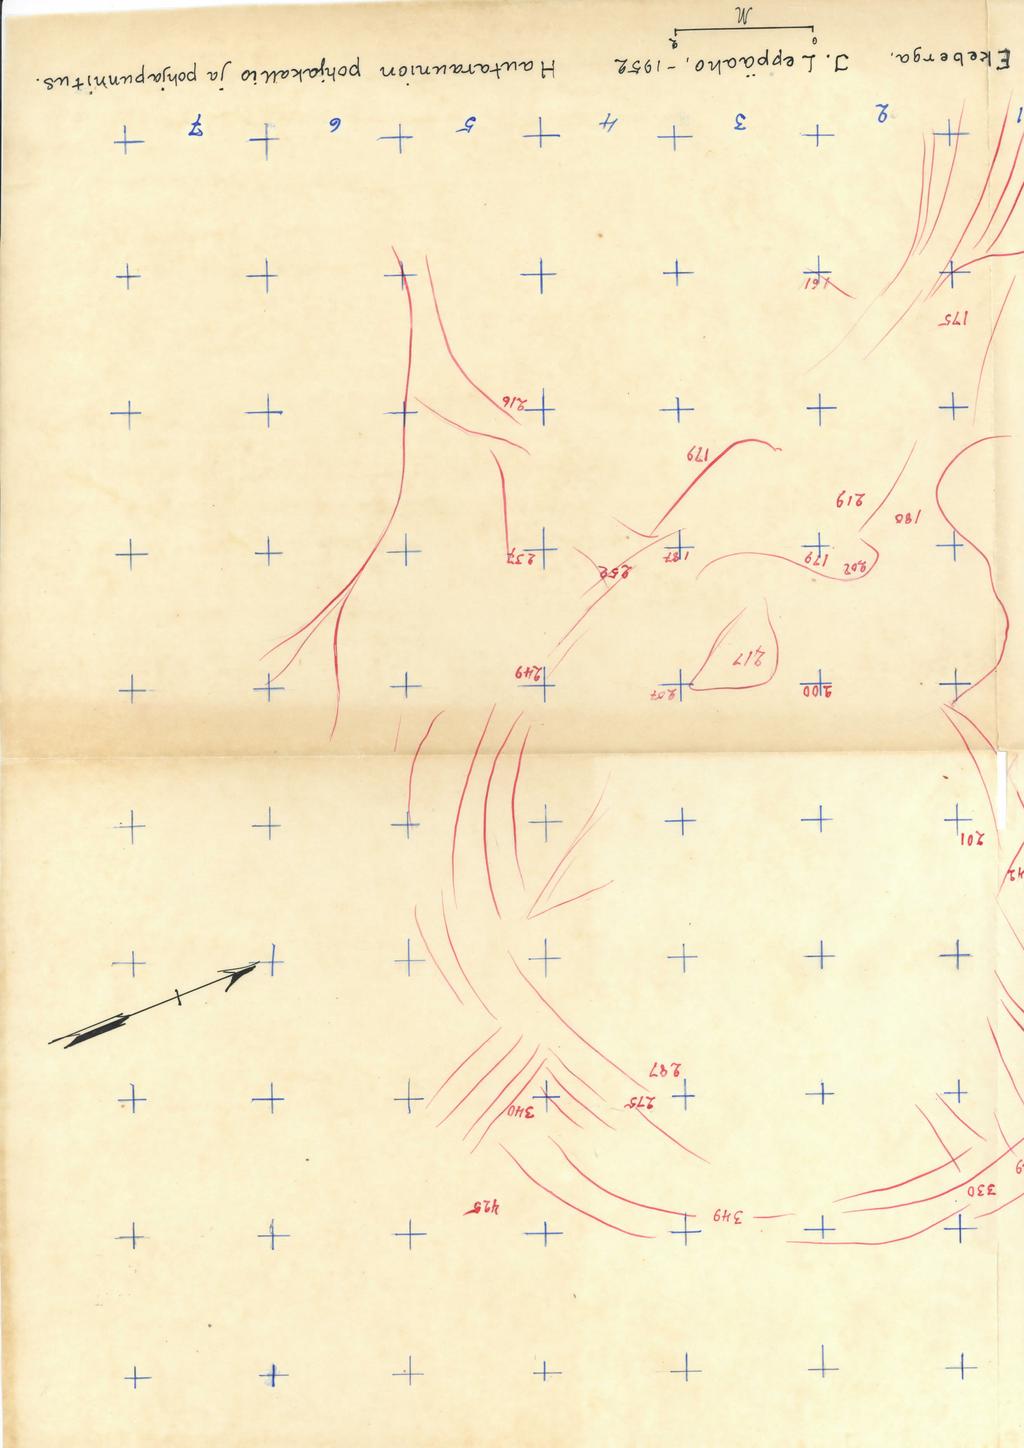 349
425
330
340
275
287
42
201
200
207
249
217
252
179
187
237
180
219
179
216
175
161
1 2 3 4 5 6 7
Ekeberga. J. Leppäaho, -1952 Hautaraunion pohjakallio ja pohjapunnitus.
0 2
M